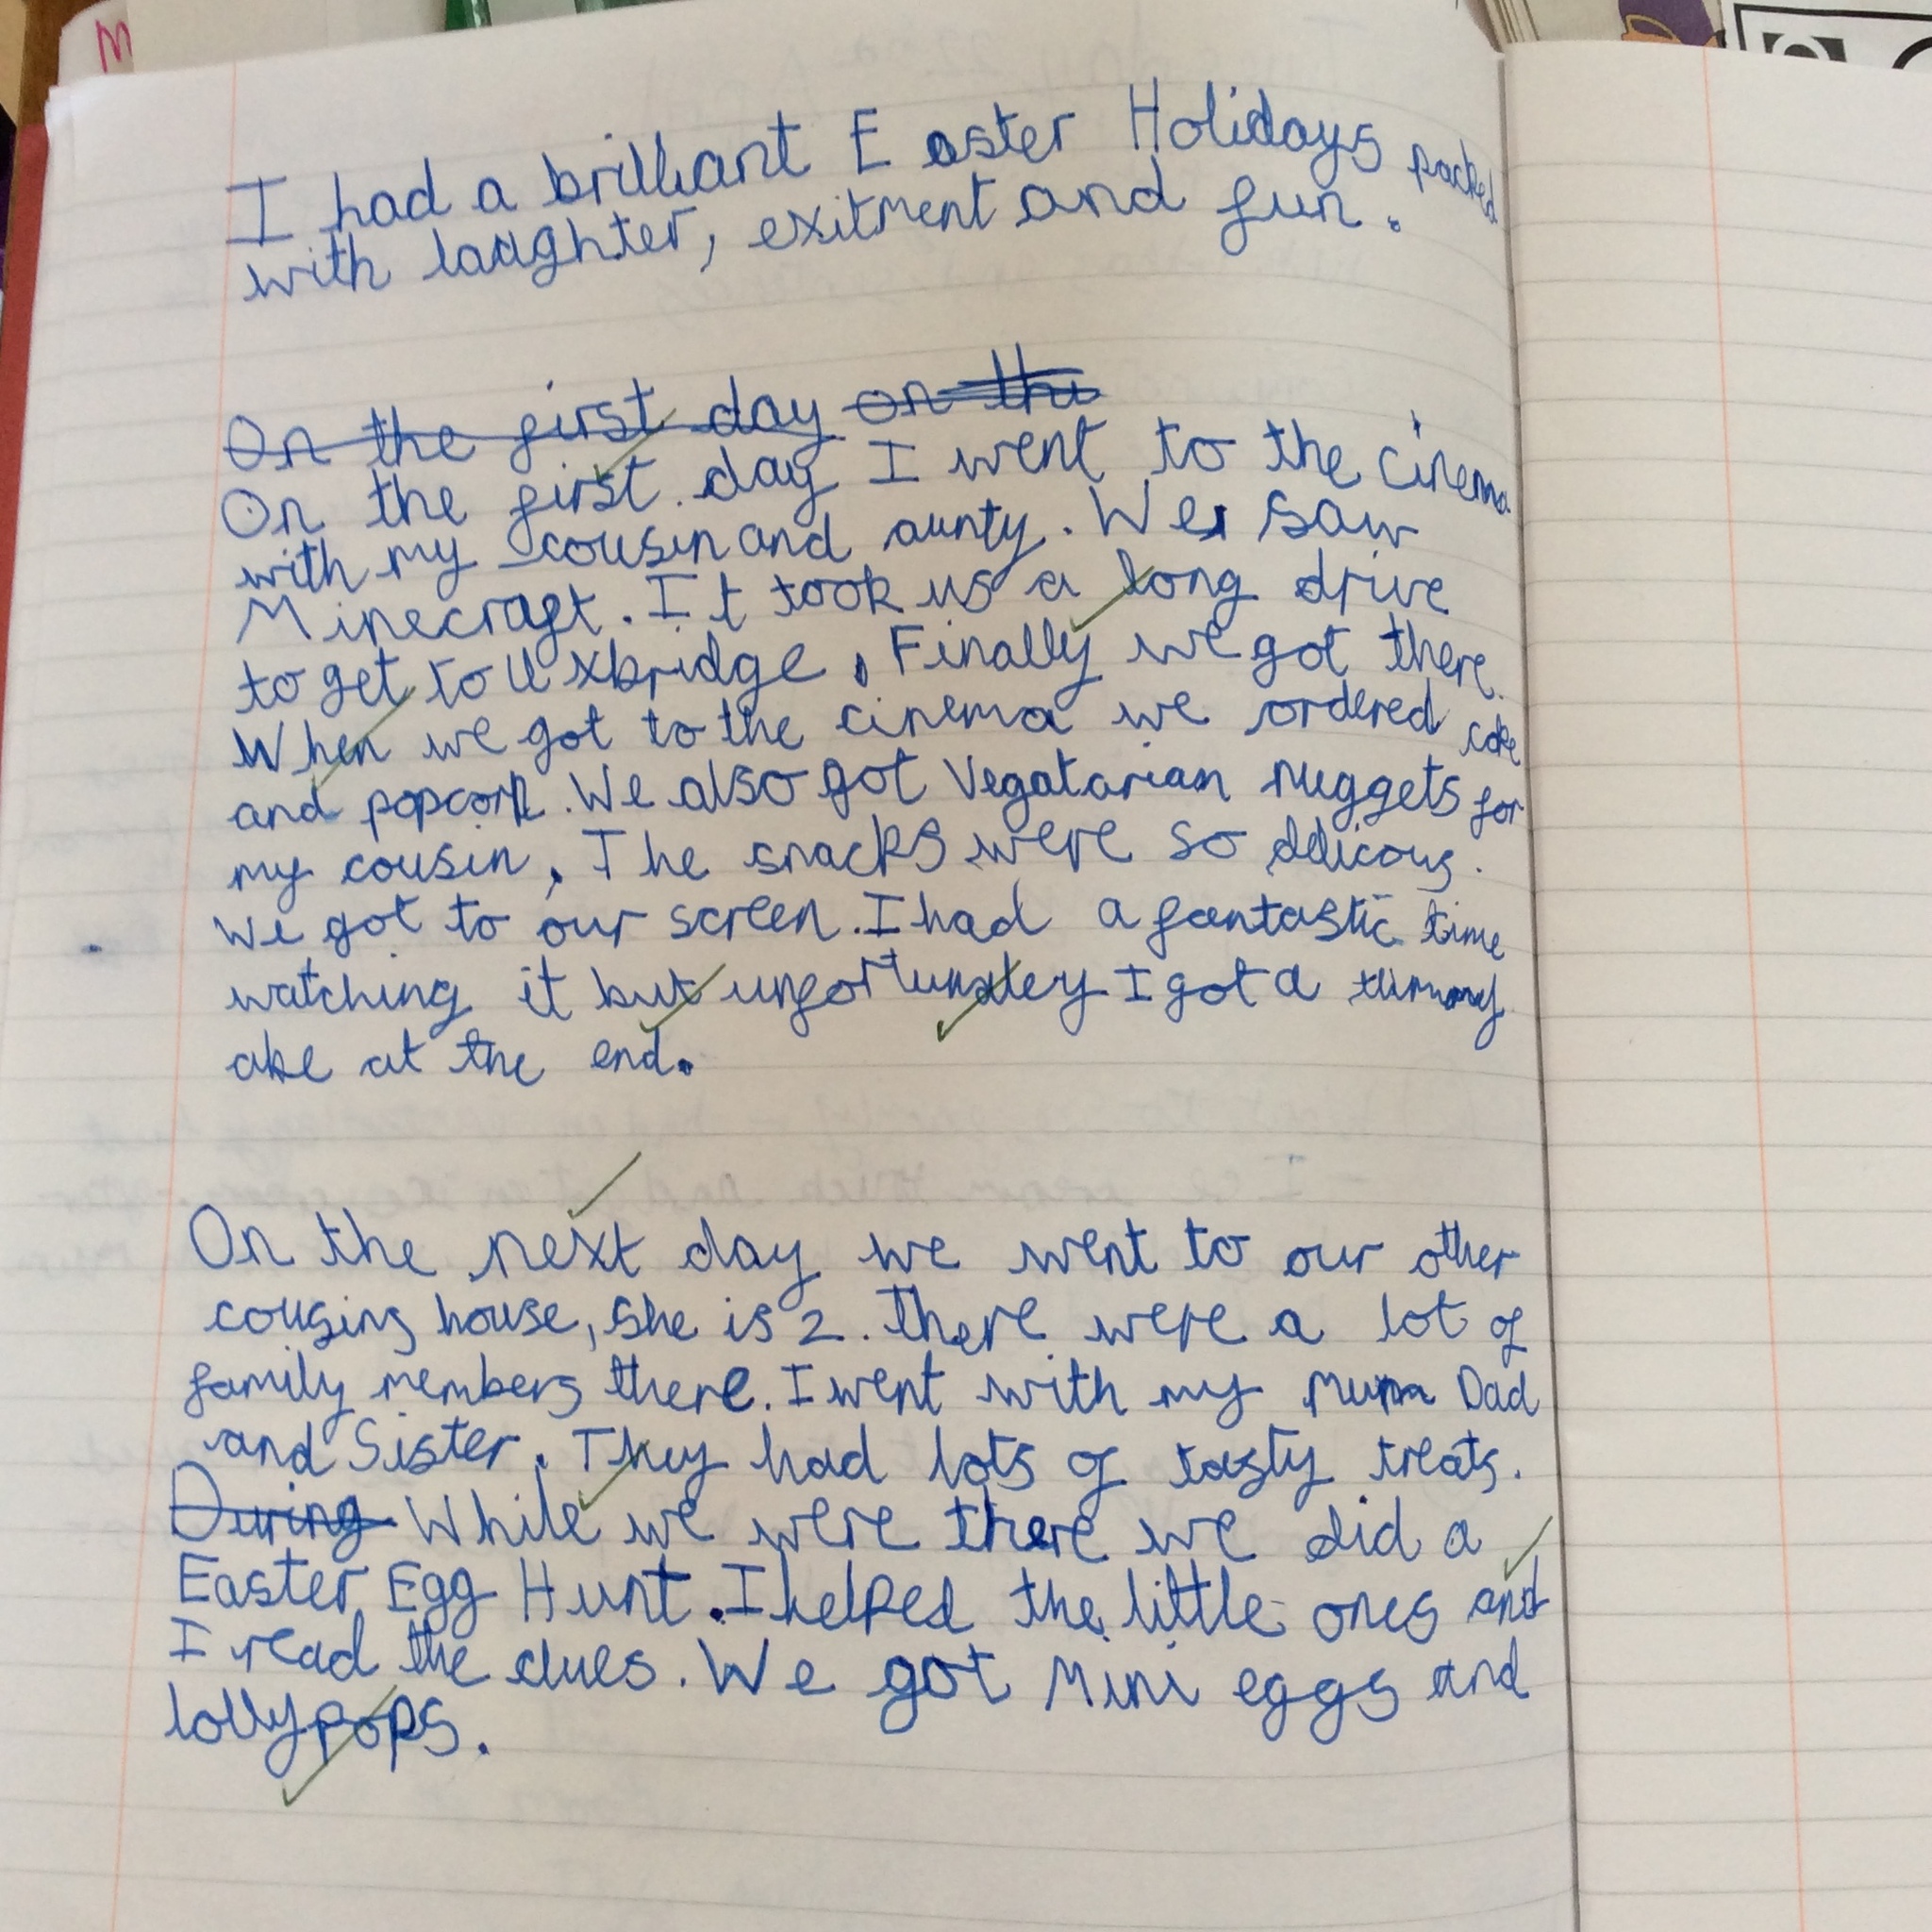 I had a brilliant Easter Holidays packed
with laughter, exitment and fun.
On the first day on the
On the first day I went to the cinema
with my cousin and aunty. We saw
Minecraft. It took us a long drive
to get to Uxbridge. Finally we got there.
When we got to the cinema we ordered coke
and popcorn. We also got Vegatarian nuggets for
my cousin. The snacks were so delicous.
We got to our screen. I had a fantastic time
watching it but unfortunatley I got a tummy
ake at the end.
On the next day we went to our other
cousins house, she is 2. There were a lot of
family members there. I went with my Mum Dad
and Sister. They had lots of tasty treats.
During While we were there we did a
Easter Egg Hunt. I helped the little ones and
I read the clues. We got Mini eggs and
lollypops.
M